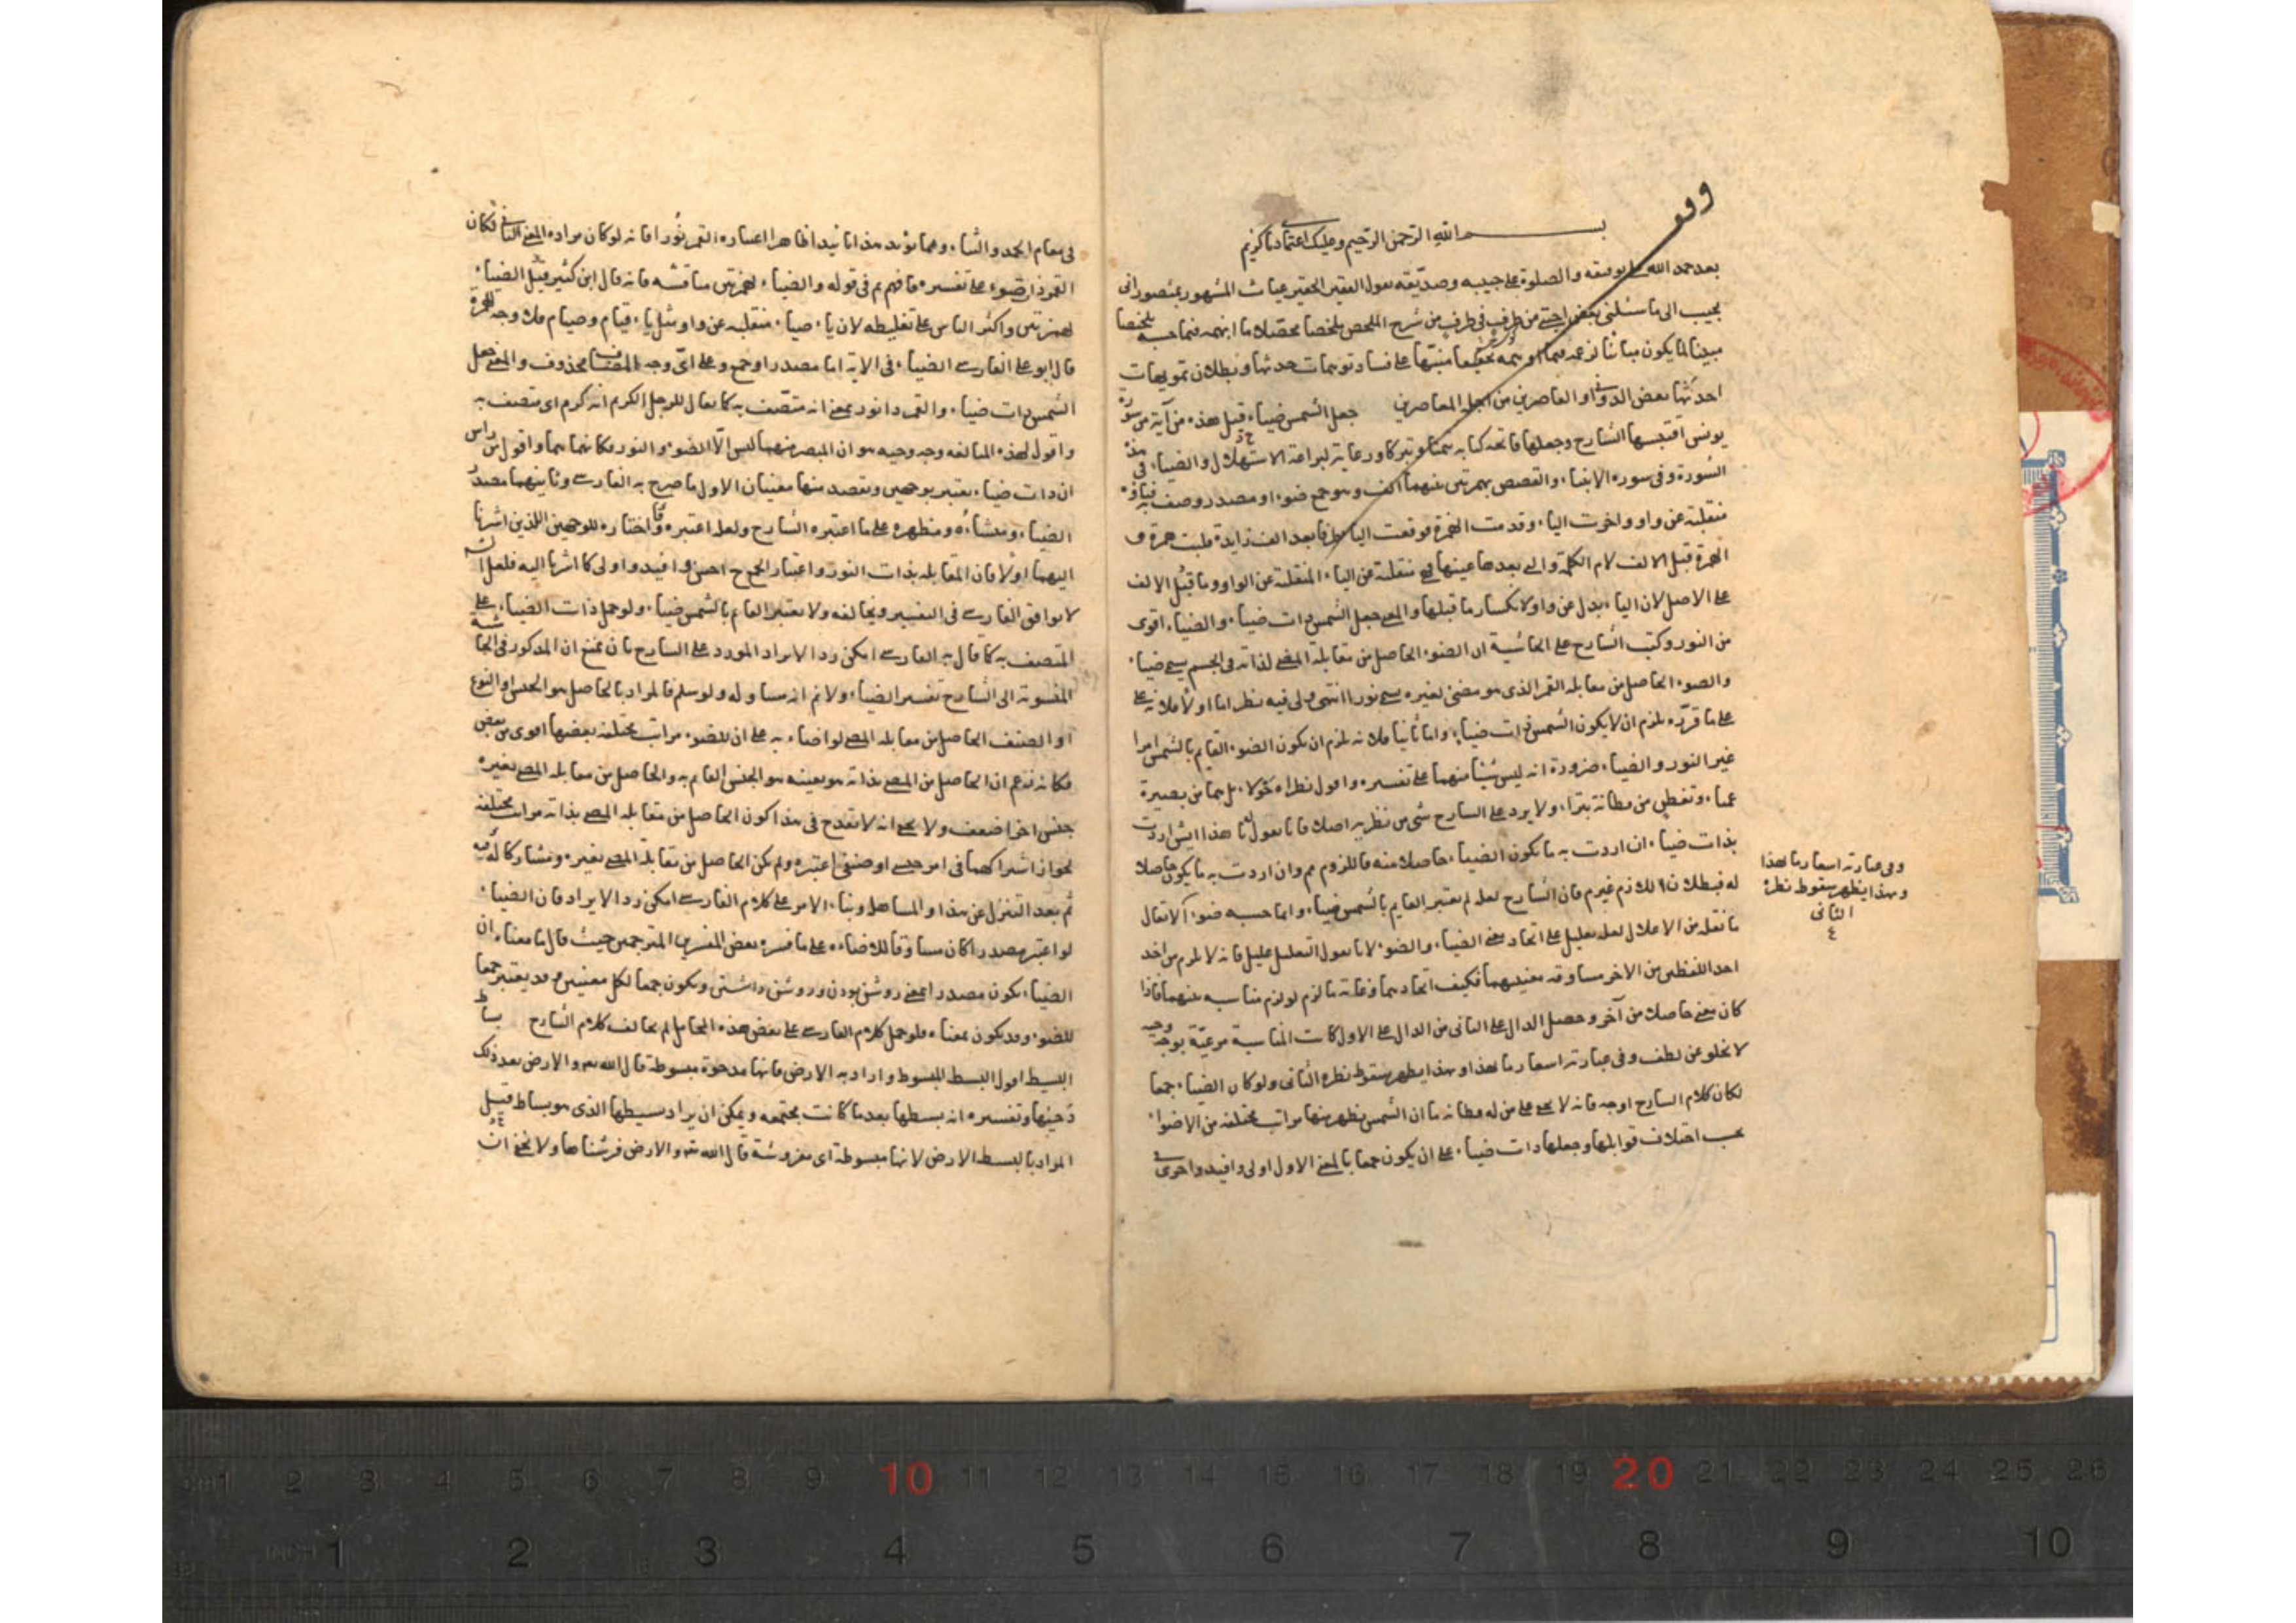 وقف
بسم الله الرحمن الرحيم وعليك اعتمادنا يا كريم
بعد حمد الله على توفيقه والصلوة على حبيبه وصديقه يقول الفقير الحقير غياث المشهور بمنصور انى
مجيب الى ما سئلنى بعض احبتى من طرف فى طرف من شرح الملخص ملخصا محصلا ما ابهمه فيما حسبه ملخصا
مبينا لما يكون مباينا لزعمه فيما اوهمه تحقيقا منبها على فساد توهمات حدثها وبطلان تمويهات
احدثها بعض الدوانى او القاصرين من اجلة المعاصرين جعل الشمس ضياء قيل هذه من آية من سورة
يونس اقتبسها الشارح وجعلها فاتحة كتابه تيمنا وتبركا ورعاية لبراعة الاستهلال والضياء فى هذه
السورة وفى سورة الانبياء والقصص بهمزتين بينهما الف وهو جمع ضوء او مصدر وصف به فياؤه
منقلبة عن واو واخرت الياء وقدمت الهمزة فوقعت الياء طرفا بعد الف زايدة قلبت همزة ف
الهمزة قبل الالف لام الكلمة والتى بعدها عينها فهى منقلبة عن الياء المنقلبة عن الواو وما قبل الالف
على الاصل لان الياء بدل عن واو لانكسار ما قبلها والمعنى جعل الشمس ذات ضياء والضياء اقوى
من النور وكتب الشارح على الحاشية ان الضوء الحاصل من مقابلة المضئ لذاته فى الجسم يسمى ضياء
والضوء الحاصل من مقابلة القمر الذى هو مضئ لغيره يسمى نورا انتهى ولى فيه نظر اما اولا فلانه على
على ما قرره يلزم ان لا يكون الشمس ذات ضياء واما ثانيا فلانه يلزم ان يكون الضوء القايم بالشمس امرا
غير النور والضياء ضرورة انه ليس شيئا منهما على تفسيره واقول نظراه حولا بل هما من بصيرة
عمياء وتفطن من فطانة بتراء ولا يرد على الشارح شئ من نظريه اصلا فانا نقول له ما هذا ايش اردت
بذات ضياء ان اردت به ما يكون الضياء حاصلا منه فاللزوم مم وان اردت به ما يكون حاصلا
له فبطلان اللازم غير مم فان الشارح لعله لم يعتبر القايم بالشمس ضياء وانما حسبه ضوء الا يقال
ما نقله من الاعلال لعله تعليل على اتحاد معنى الضياء والضوء لانا نقول التعليل عليل فانه لا يلزم من اخذ
احد اللفظين من الاخر مساوقة معنييهما فكيف اتحادهما وغاية ما لزم لو لزم مناسبة بينهما فاذا
كان معنى حاصلا من آخر وحصل الدال على الثانى من الدال على الاول كانت المناسبة مرعية بوجه وجيه
لا يخلو عن لطف وفى عبارته اسعار ما بهذا وبهذا يظهر سقوط نظره الثانى ولو كان الضياء جمعا
لكان كلام الشارح اوجه فانه لا يخفى على من له فطانة ما ان الشمس يظهر منها مراتب مختلفة من الاضواء
بحسب اختلاف قوابلها وجعلها ذات ضياء على ان يكون جمعا بالمعنى الاول اولى وافيد واحرى
وفى عبارته اسعار ما بهذا
وبهذا يظهر سقوط نظره
الثانى
فى مقام الحمد والثناء ومما يؤيد هذا تاييدا ظاهرا اعتباره القمر نورا فانه لو كان مراده المعنى الثانى لكان
القمر ذا ضوء على تفسيره فافهم ثم فى قوله والضياء بهمزتين مناقشة فانه قال ابن كثير قبل الضياء
بهمزتين واكثر الناس على تغليطه لان ياء ضياء منقلبة عن واو مثل ياء قيام وصيام فلا وجه للهمزة
قال ابو على الفارسى الضياء فى الاية اما مصدر او جمع وعلى اى وجه المضاف محذوف والمعنى جعل
الشمس ذات ضياء والقمر ذا نور بمعنى انه متصف به كما يقال للرجل الكريم انه كرم اى متصف به
واقول لهذه المبالغة وجه وجيه هو ان المبصر منهما ليس الا الضوء والنور فكانهما هما واقول من راس
ان ذات ضياء يعتبر بوجهين ويقصد منها معنيان الاول ما صرح به الفارسى وثانيهما مصدر
الضياء ومنشاؤه ومظهره على ما اعتبره الشارح ولعله اعتبره واختاره للوجهين اللذين اشرنا
اليهما اولا فان المقابلة بذات النور واعتبار الجمع احسن وافيد واولى كما اشرنا اليه فلعل الشارح
لا يوافق الفارسى فى التفسير ويخالفه ولا يعتبر القايم بالشمس ضياء ولو حمل ذات الضياء على
المتصف به كما قال به الفارسى امكن رد الايراد المورد على الشارح بان نمنع ان المذكور فى الحاشية
المنسوبة الى الشارح تفسير الضياء ولانم انه مساو له ولو سلم فالمراد بالحاصل هو الجنس او النوع
او الصنف الحاصل من مقابلة المضئ لو اضاء به على ان للضوء مراتب مختلفة بعضها اقوى من بعض
فكانه زعم ان الحاصل من المضئ بذاته هو بعينه هو الجنس القايم به والحاصل من مقابلة المضئ بغيره
جنس اخر اضعف ولا يخفى انه لا يقدح فى هذا كون الحاصل من مقابلة المضئ بذاته مراتب مختلفة
لجواز اشتراكهما فى امر جنسى او صنفى اعتبره ولم يكن الحاصل من مقابلة المضئ بغيره مشاركا له فيه
ثم بعد التنزل عن هذا والتساهل وبناء الامر على كلام الفارسى امكن رد الايراد فان الضياء
لو اعتبر مصدرا كان مساوقا للاضاءة على ما فسره بعض المفسرين المترجمين حيث قال ما معناه ان
الضياء يكون مصدرا بمعنى روشن بودن وروشن داشتن ويكون جمعا لكل معنيين وقد يعتبر جمعا
للضوء وقد يكون بمعناه فلو حمل كلام الفارسى على بعض هذه المحامل لم يخالف كلام الشارح بساط
البسيط اقول البسط المبسوط واراد به الارض فانها مدحوة مبسوطة قال الله تع والارض بعد ذلك
دحيها وتفسيره انه بسطها بعد ما كانت مجتمعة ويمكن ان يراد ببسيطها الذى هو بساط قيل
المراد بالبسط الارض لانها مبسوطة اى مفروشة قال الله تع والارض فرشناها ولا يخفى ان